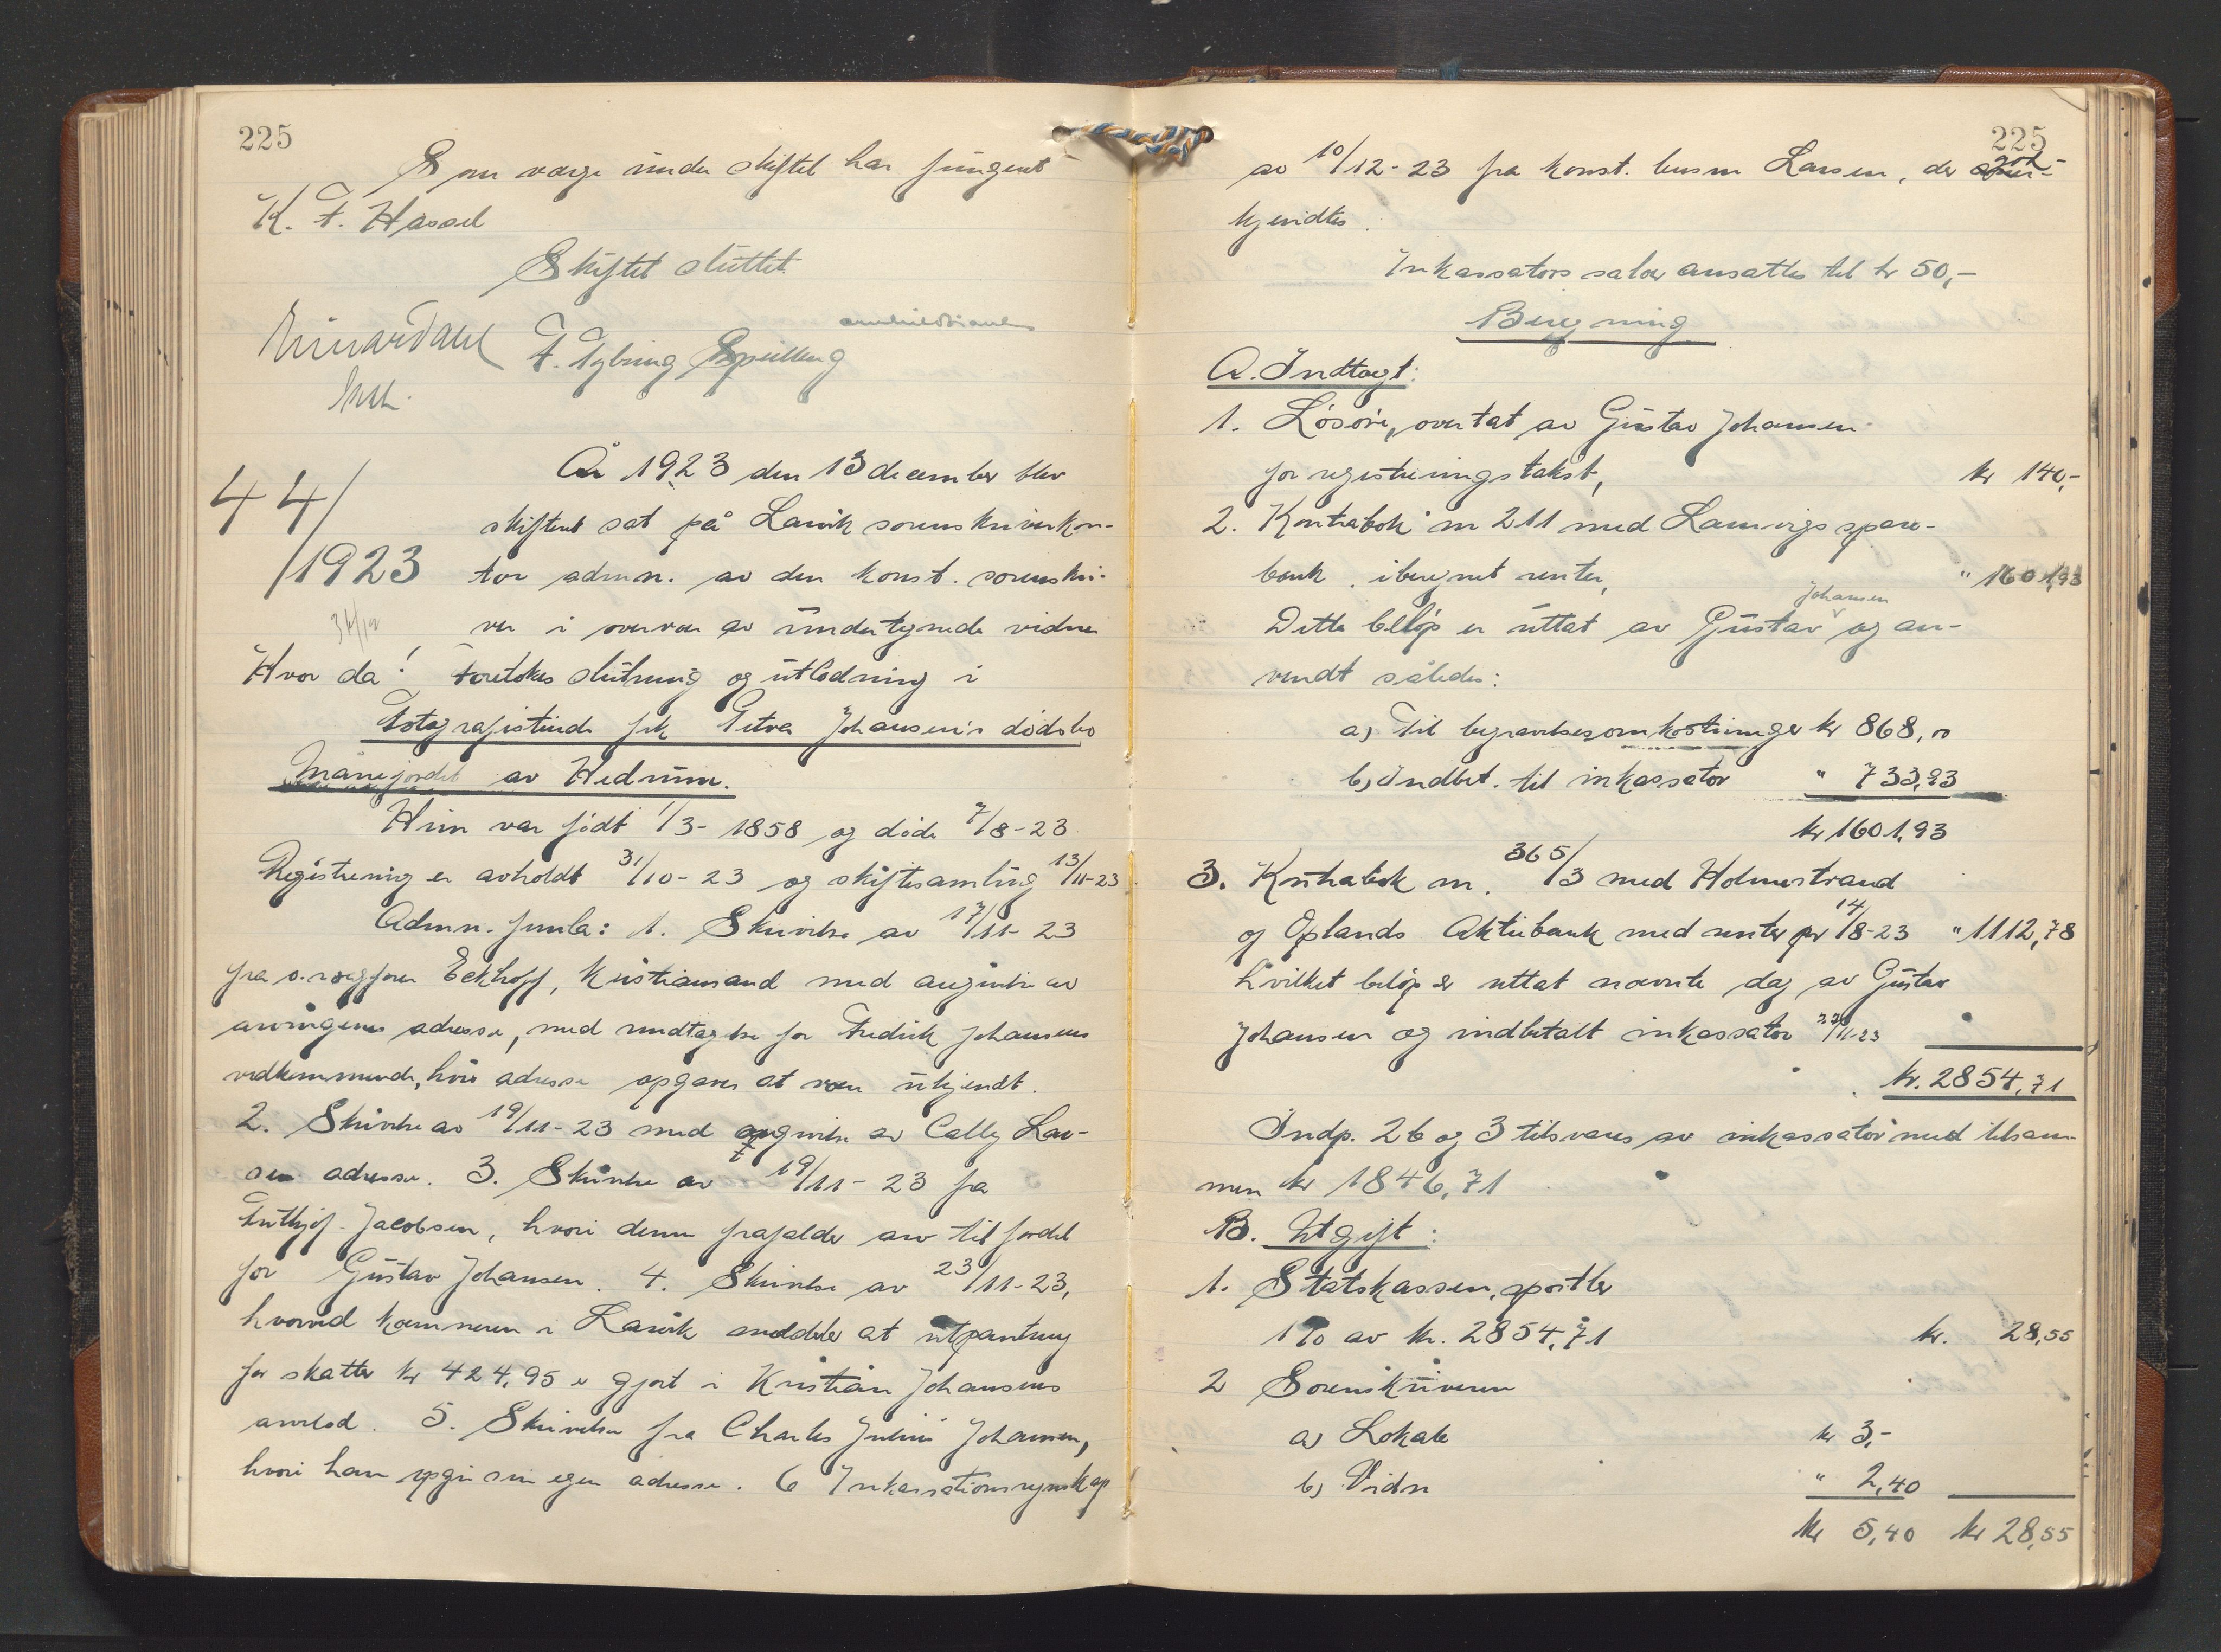 225
Som værge under skiftet har fungert
K. F. Hassel
Skiftet sluttet
F. Nybring
44/1923
År 1923 den 13 december blev
skifteret sat på Larvik sorenskriverkon-
tor admn. av den konst. sorenskri-
ver i overvær av undertegnede vidner
Hvor da! Foretokes slutning og utlodning i
Fotografistinde frk Petra Johansen's dødsbo
Månejordet av Hedrum.
Hun var født 1/3-1858 og døde 7/8-23.
Registrering er avholdt 31/10-23 og skiftesamling 13/11-23.
Admn. fremla: 1. Skrivelse av 17/11-23
fra o.r.sagfører Eckhoff, Kristiansand med angivelse av
arvingenes adresse, med undtagelse for Fredrik Johansens
vedkommende, hvis adresse opgaves at være ukjendt.
2. Skrivelse av 19/11-23 med opgivelse av Cally Lar-
sens adresse. 3. Skrivelse av 19/11-23 fra
Frithjof Jacobsen, hvori denne frafalder arv til fordel
for Gustav Johansen. 4. Skrivelse av 23/11-23,
hvorved kæmneren i Larvik meddeler at utpantning
for skatter kr 424,95 er gjort i Kristian Johansens
arvelod. 5. Skrivelse fra Charles Julius Johansen,
hvori han opgir sin egen adresse. 6 Inkassationsregnskap
225
av 10/12-23 fra konst. lensm Larsen, der god-
kjendtes.
Inkassators salær ansattes til kr 50,-
Beregning
A. Indtægt:
1. Løsøre, overtat av Gustav Johansen
for registreringstakst, kr 140,-
2. Kontrabok nr 211 med Laurvigs spare-
bank, iberegnet renter, " 1601,93
Dette beløp er uttat av Gustav Johansen og an-
vendt således:
a) Til begravelsesomkostninger kr 868,00
b) Indbet. til inkassator " 733,93
kr 1601,93
3. Kontrabok nr. 365/3 med Holmestrand
og Oplands Aktiebank med renter pr 14/8-23 " 1112,78
hvilket beløp er uttat nævnte dag av Gustav
Johansen og indbetalt inkassator 27/11-23
kr. 2854,71
Indp. 2b og 3 tilsvares av inkassator med tilsam-
men kr 1846,71
B. Utgift:
1. Statskassen, sportler
1% av kr. 2854,71 kr. 28,55
2 Sorenskriveren
a) Lokale kr 3,-
b) Vidn " 2,40
kr 5,40 kr 28,55